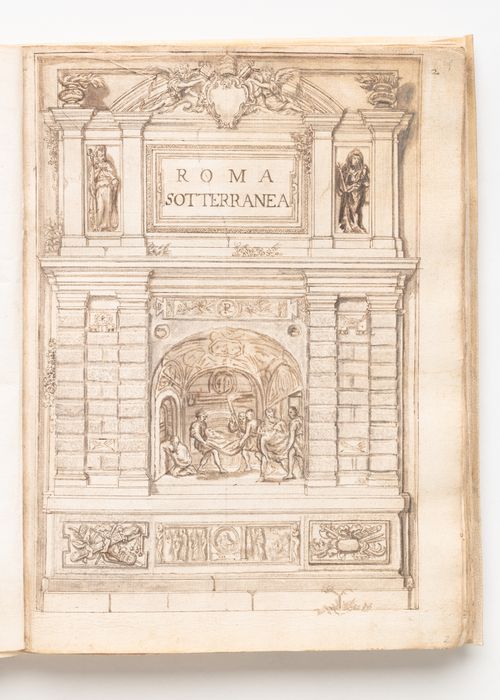 2
ROMA
SOTTERRANEA